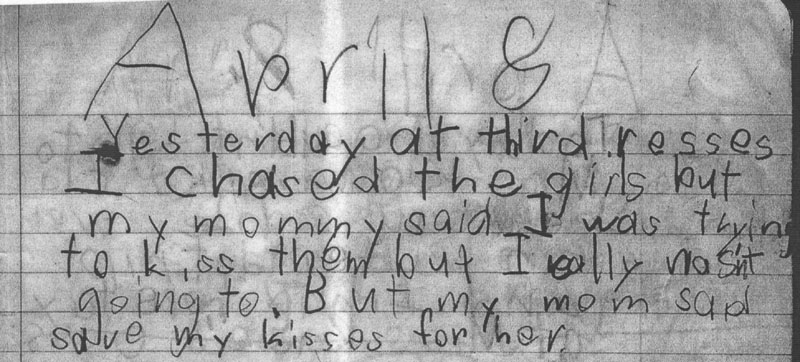 April 8
Yesterday at third resses
I chased the girls but
my mommy said I was trying
to kiss them but I really wasn't
going to. But my mom sad
save my kisses for her.